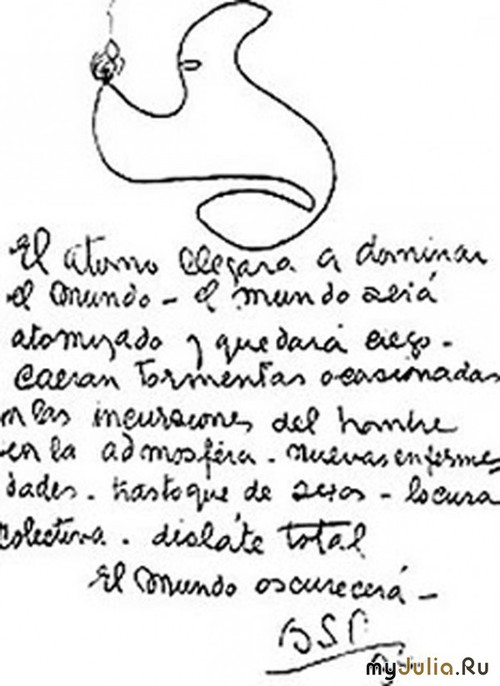 El atomo llegara a dominar
el mundo - el mundo será
atomizado y quedará ciego -
caeran tormentas ocasionadas
or las incursiones del hombre
en la admosféra . nuevas enferme
dades - trastoque de sexos - locura
colectiva . disláte total
El mundo oscurecerá -
BSP
myJulia.Ru